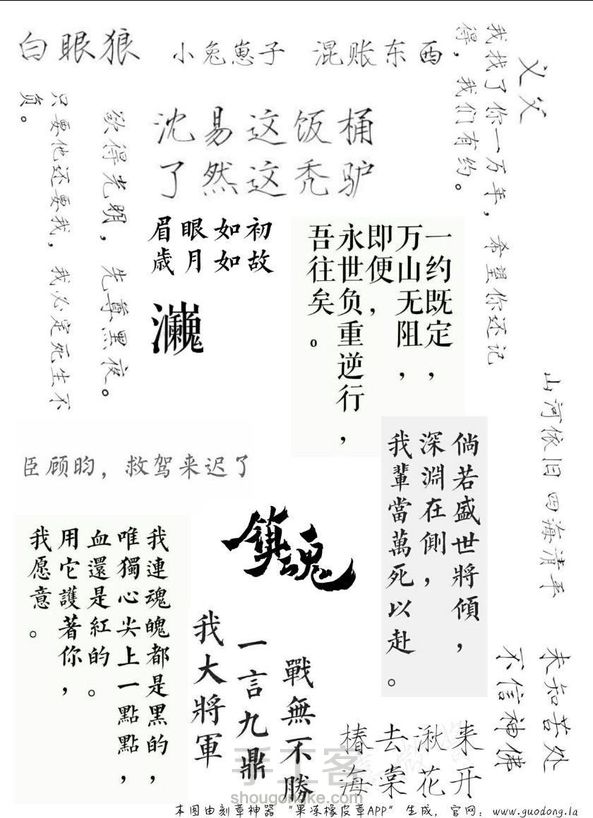 白眼狼
小兔崽子
混账东西
义父
我找了你一万年,希望你还记
得,我们有约。
沈易这饭桶
了然这秃驴
欲得光明,先尊黑夜。
只要他还要我,我必定死生不
负。
眉眼如初
歲月如故
一约既定,
万山无阻,
即便,
永世负重逆行,
吾往矣。
山河依旧 四海清平
臣顾昀,救驾来迟了
倘若盛世將傾,
深淵在側,
我輩當萬死以赴。
鎮魂
我連魂魄都是黑的,
唯獨心尖上一點點,
血還是紅的。
用它護著你,
我愿意。
戰無不勝
一言九鼎
我大將軍
未知苦处
不信神佛
椿去湫来
海棠花开
手工客
shougongke.com
本图由刻章神器 "果冻橡皮章APP" 生成,官网:www.guodong.la